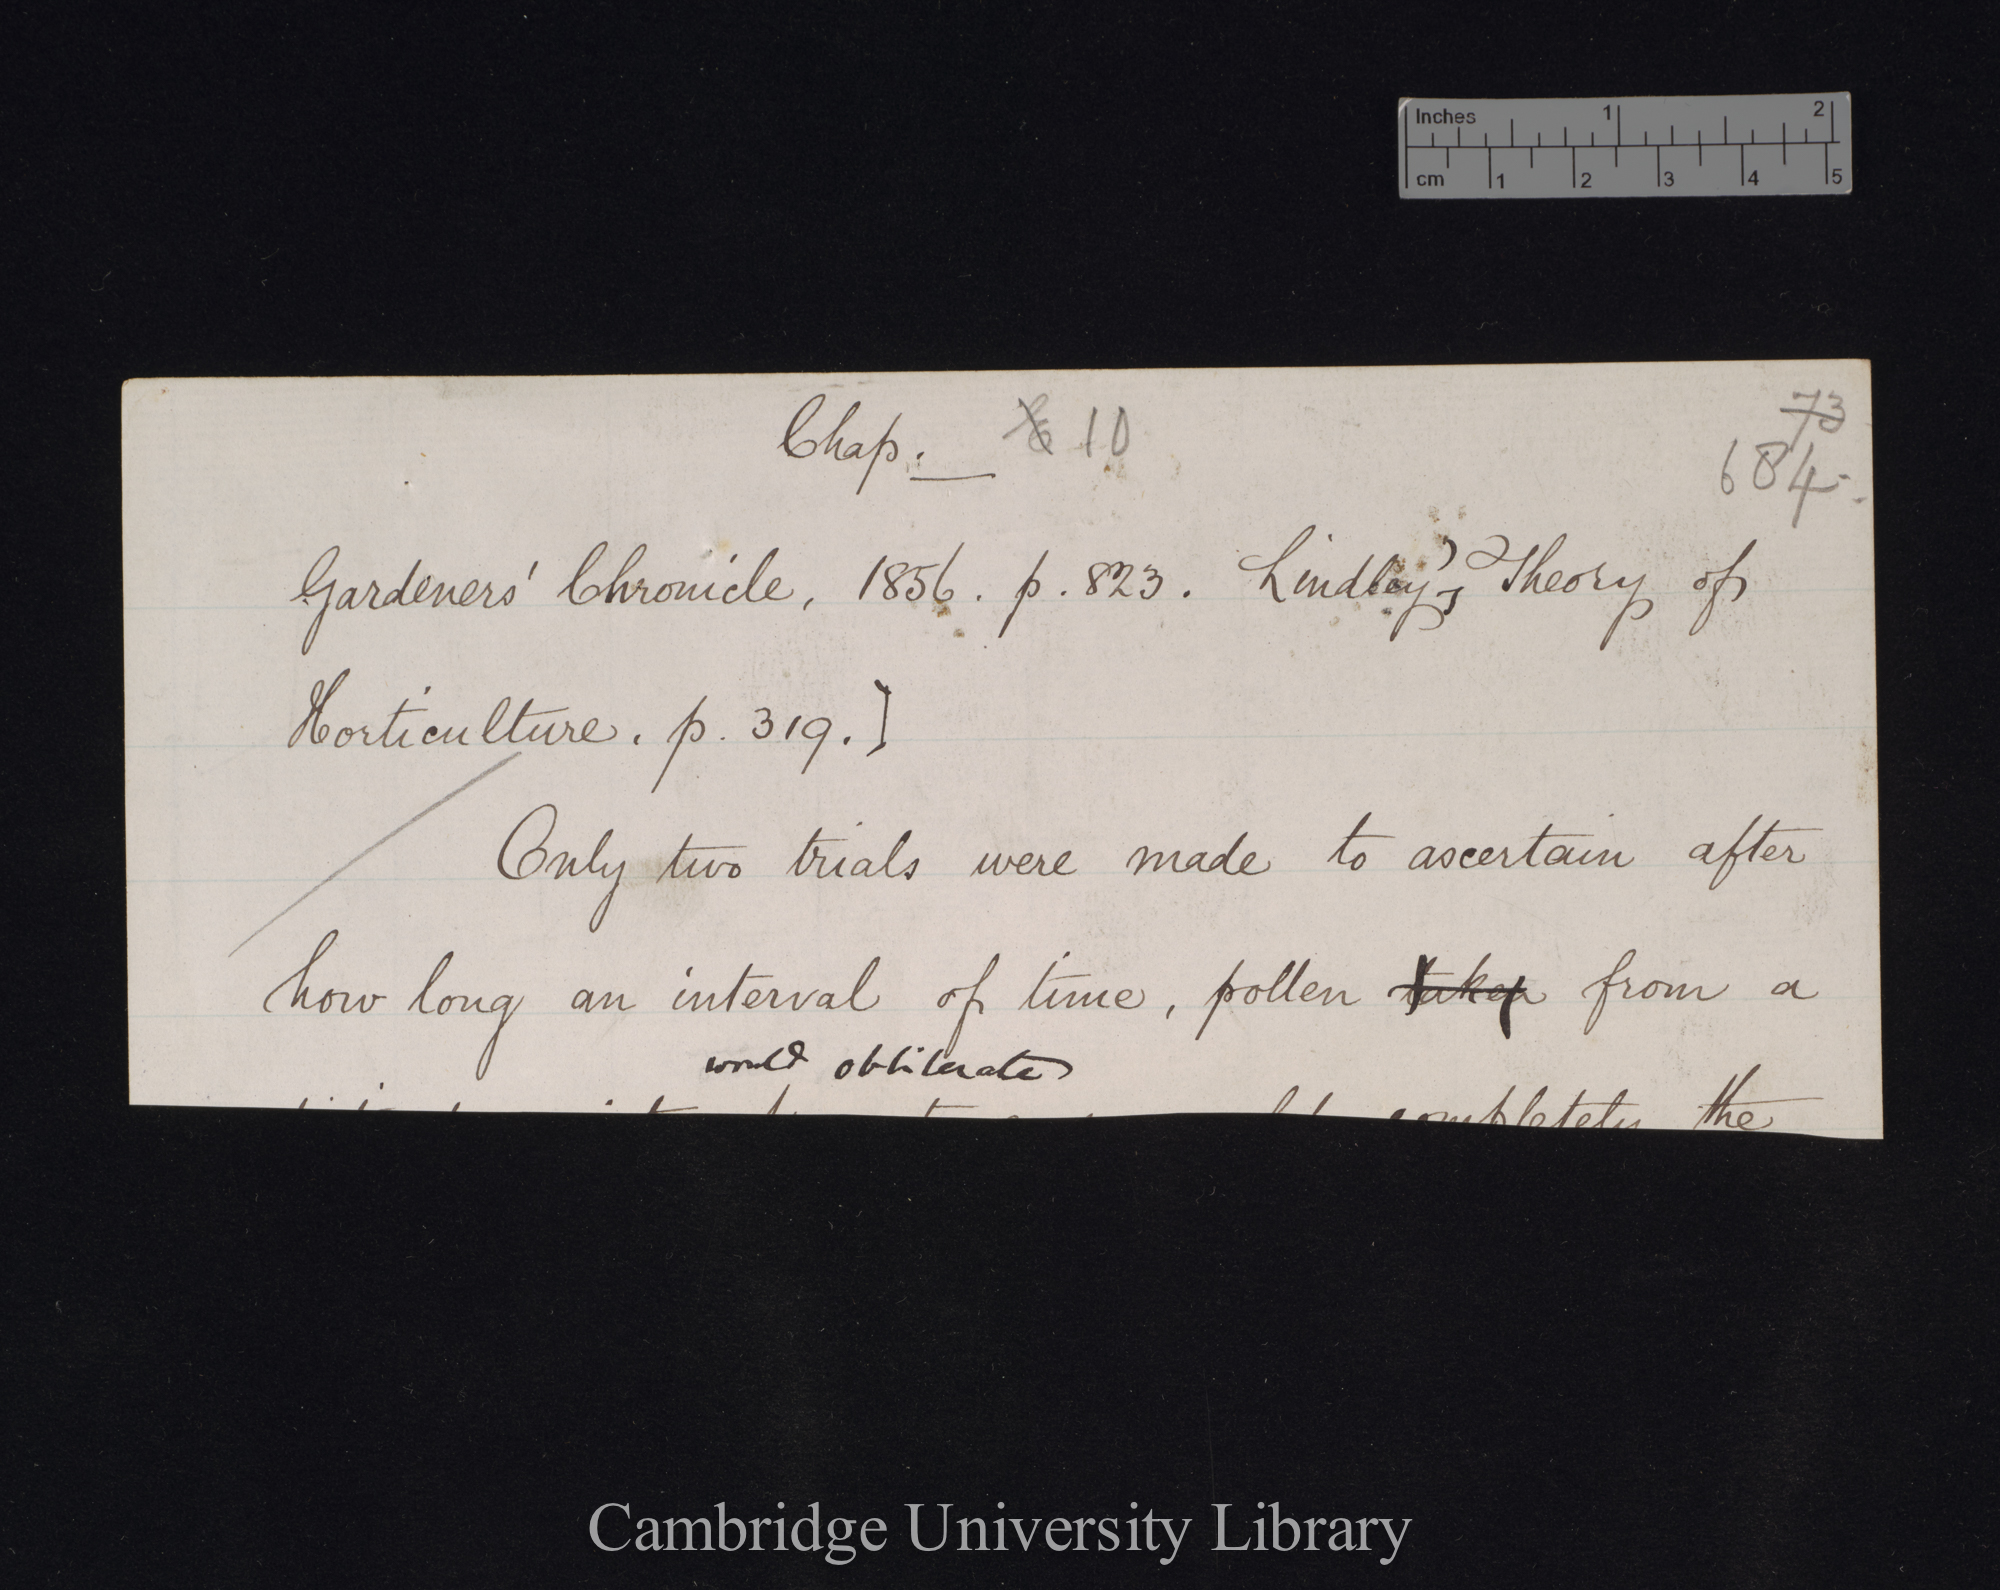 Inches 1 2
cm 1 2 3 4 5
Chap. 6 10
73
684.
Gardeners' Chronicle, 1856. p. 823. Lindley's Theory of
Horticulture. p. 319.]
Only two trials were made to ascertain after
how long an interval of time, pollen taken from a
would obliterate
completely the
Cambridge University Library